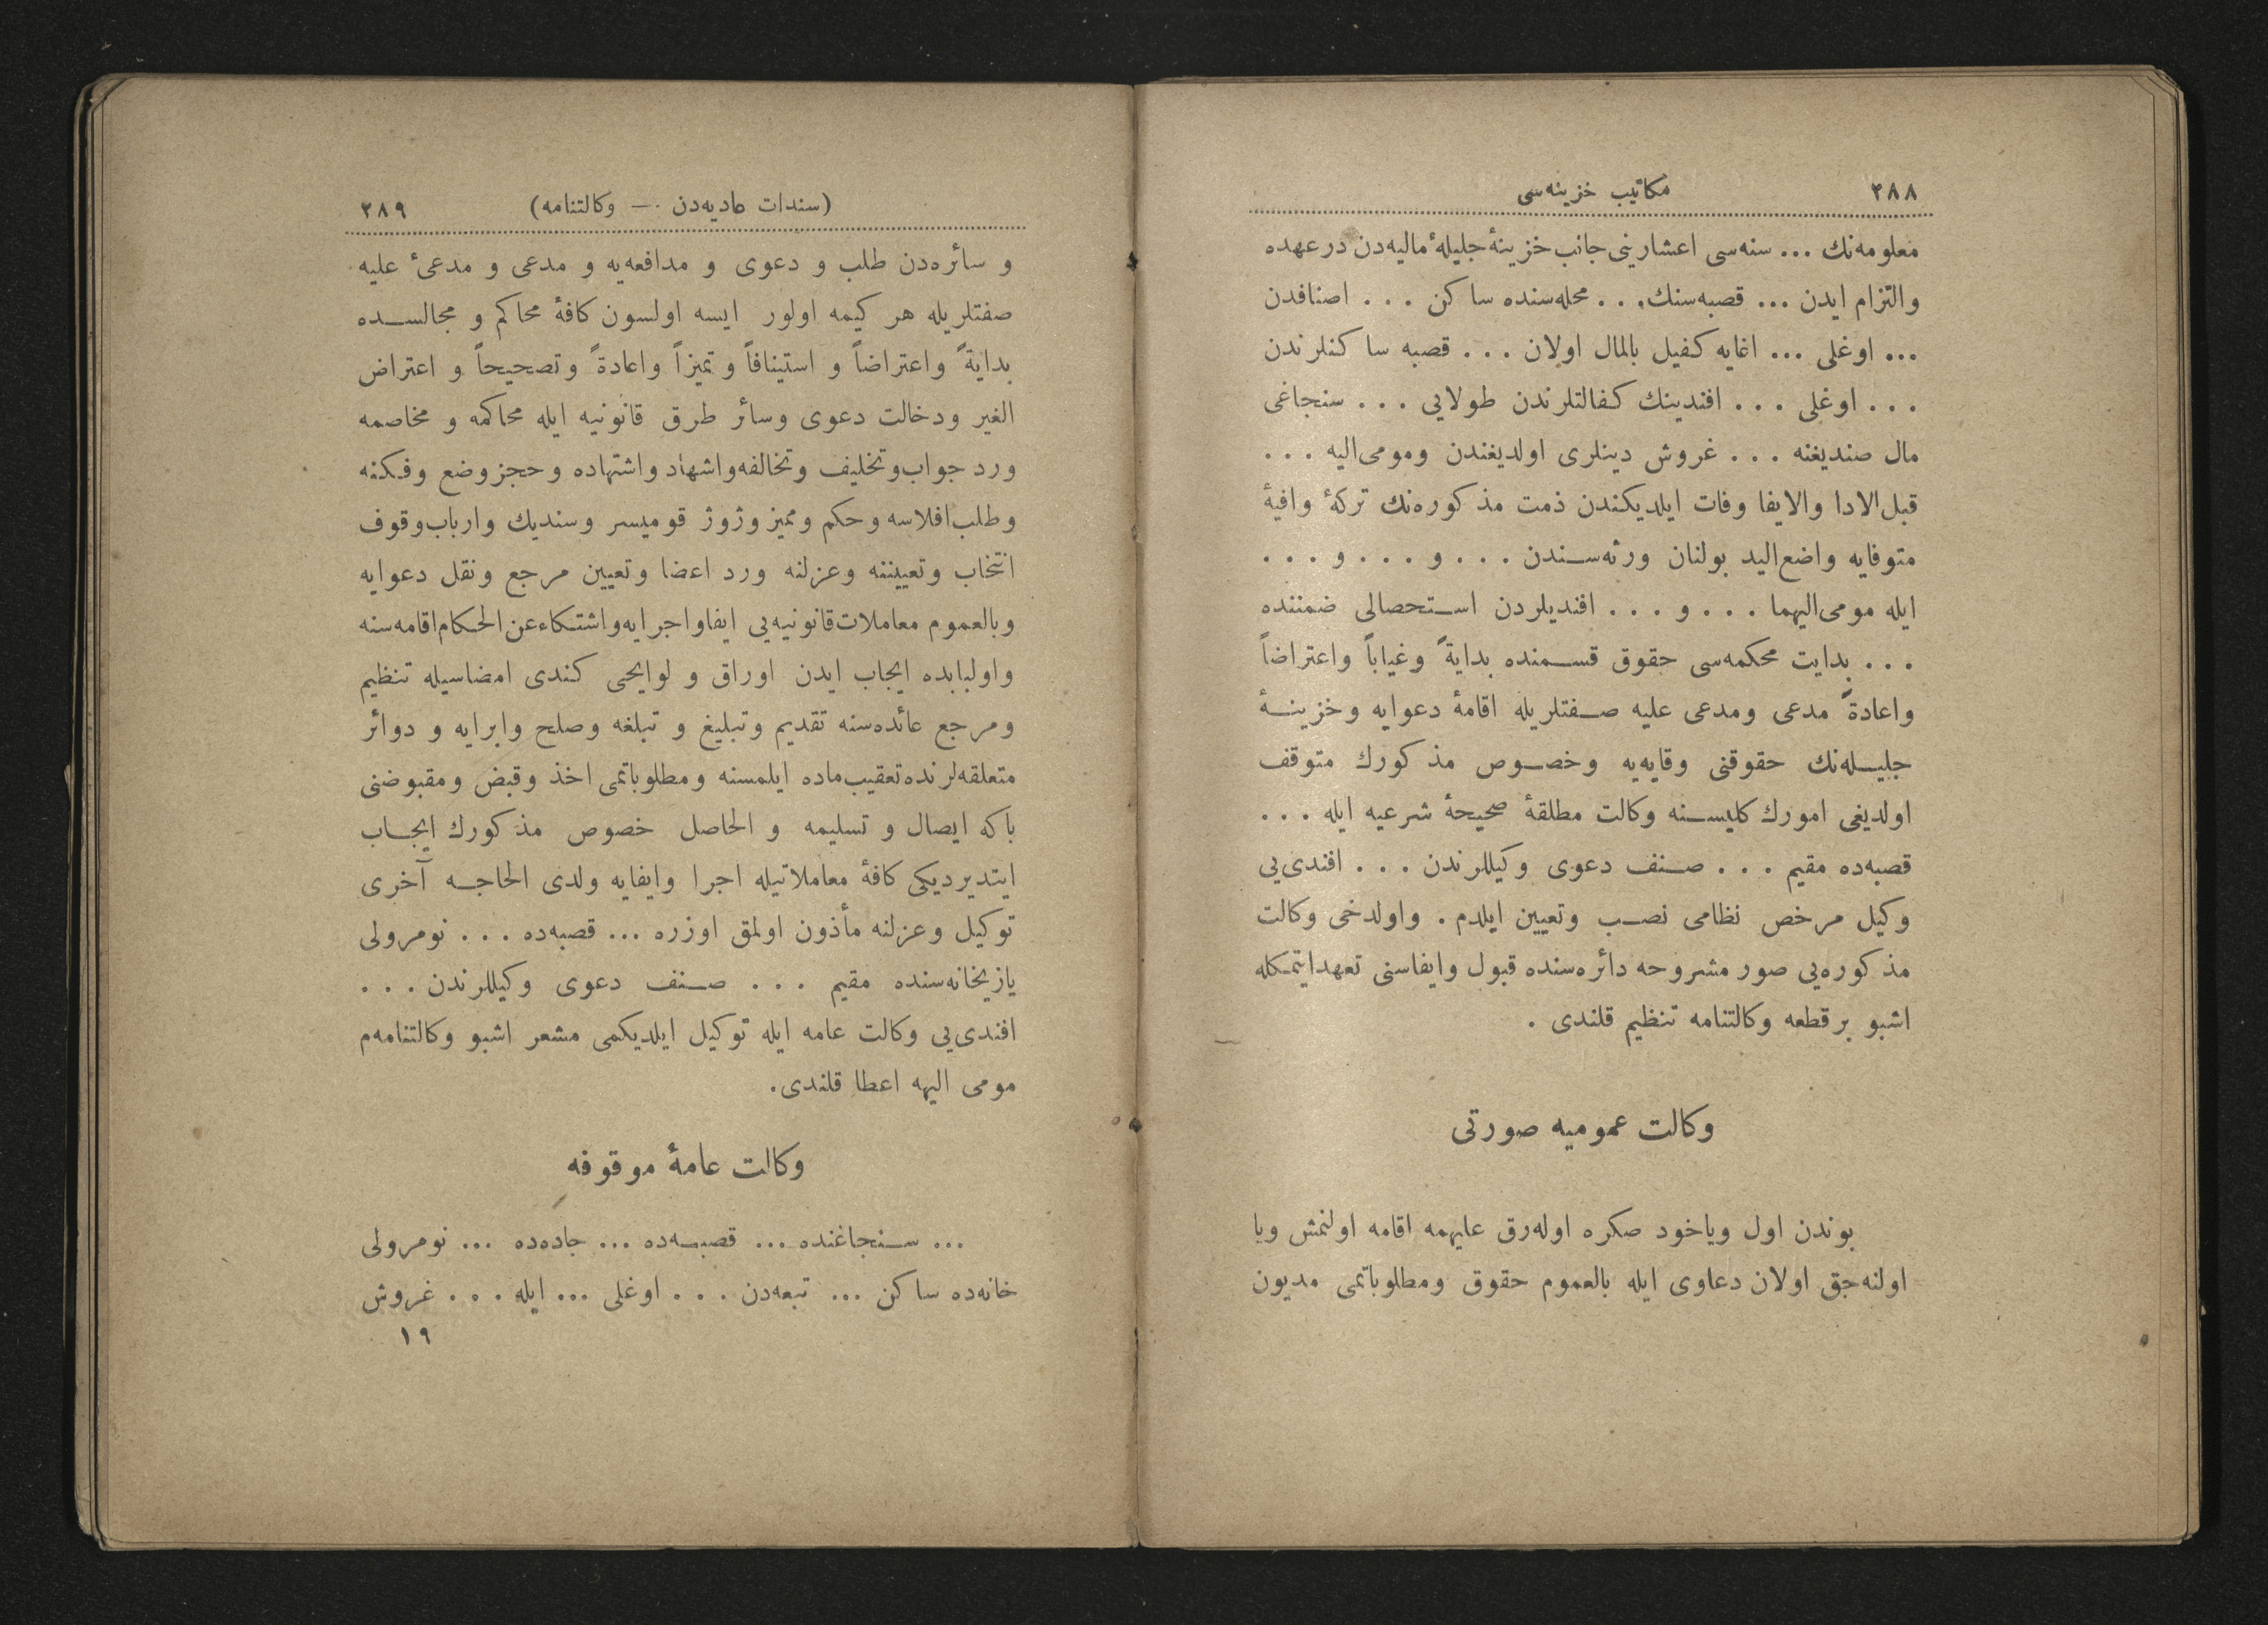 ٢٨٨ مكاتيب خزينه‌سى
معلومه‌نك ... سنه‌سى اعشارينى جانب خزينۀ جليلۀ ماليه‌دن درعهده
والتزام ايدن ... قصبه‌سنك ... محله‌سنده ساكن ... اصنافدن
... اوغلى ... اغايه كفيل بالمال اولان ... قصبه ساكنلرندن
... اوغلى ... افندينك كفالتلرندن طولايى ... سنجاغى
مال صنديغنه ... غروش دينلرى اولديغندن ومومى‌اليه ...
قبل‌الادا والايفا وفات ايلديكندن ذمت مذكوره‌نك تركۀ وافيۀ
متوفايه واضع‌اليد بولنان ورثه‌سندن ... و ... و ...
ايله مومى‌اليهما ... و ... افنديلردن استحصالى ضمننده
... بدايت محكمه‌سى حقوق قسمنده بدايةً وغياباً واعتراضاً
واعادةً مدعى ومدعى عليه صفتلريله اقامۀ دعوايه وخزينۀ
جليله‌نك حقوقنى وقايه‌يه وخصوص مذكورك متوقف
اولديغى امورك كليسنه وكالت مطلقۀ صحيحۀ شرعيه ايله ...
قصبه‌ده مقيم ... صنف دعوى وكيللرندن ... افندى‌يى
وكيل مرخص نظامى نصب وتعيين ايلدم . واولدخى وكالت
مذكوره‌يى صور مشروحه دائره‌سنده قبول وايفاسنى تعهدايتمكله
اشبو برقطعه وكالتنامه تنظيم قلندى .
وكالت عموميه صورتى
بوندن اول وياخود صكره اوله‌رق عليهمه اقامه اولنمش ويا
اولنه‌جق اولان دعاوى ايله بالعموم حقوق ومطلوباتمى مديون
(سندات عاديه‌دن — وكالتنامه) ٢٨٩
و سائره‌دن طلب و دعوى و مدافعه‌يه و مدعى و مدعىٔ عليه
صفتلريله هر كيمه اولور ايسه اولسون كافۀ محاكم و مجالسده
بدايةً واعتراضاً و استينافاً و تميزاً واعادةً وتصحيحاً و اعتراض
الغير ودخالت دعوى وسائر طرق قانونيه ايله محاكمه و مخاصمه
ورد جواب‌وتخليف وتخالفه‌واشهاد واشتهاده وحجزوضع وفكنه
وطلب‌افلاسه وحكم ومميز وژوژ قوميسر وسنديك وارباب‌وقوف
انتخاب وتعييننه وعزلنه ورد اعضا وتعيين مرجع ونقل دعوايه
وبالعموم معاملات‌قانونيه‌يى ايفاواجرايه‌واشتكاءعن‌الحكام‌اقامه‌سنه
واولبابده ايجاب ايدن اوراق و لوايحى كندى امضاسيله تنظيم
ومرجع عائده‌سنه تقديم وتبليغ و تبلغه وصلح وابرايه و دوائر
متعلقه‌لرنده‌تعقيب‌ماده ايلمسنه ومطلوباتمى اخذ وقبض ومقبوضنى
باكه ايصال و تسليمه و الحاصل خصوص مذكورك ايجاب
ايتديرديكى كافۀ معاملاتيله اجرا وايفايه ولدى الحاجه آخرى
توكيل وعزلنه مأذون اولمق اوزره ... قصبه‌ده ... نومرولى
يازيخانه‌سنده مقيم ... صنف دعوى وكيللرندن ...
افندى‌يى وكالت عامه ايله توكيل ايلديكمى مشعر اشبو وكالتنامه‌م
مومى اليهه اعطا قلندى.
وكالت عامۀ موقوفه
... سنجاغنده ... قصبه‌ده ... جاده‌ده ... نومرولى
خانه‌ده ساكن ... تبعه‌دن ... اوغلى ... ايله ... غروش
١٩